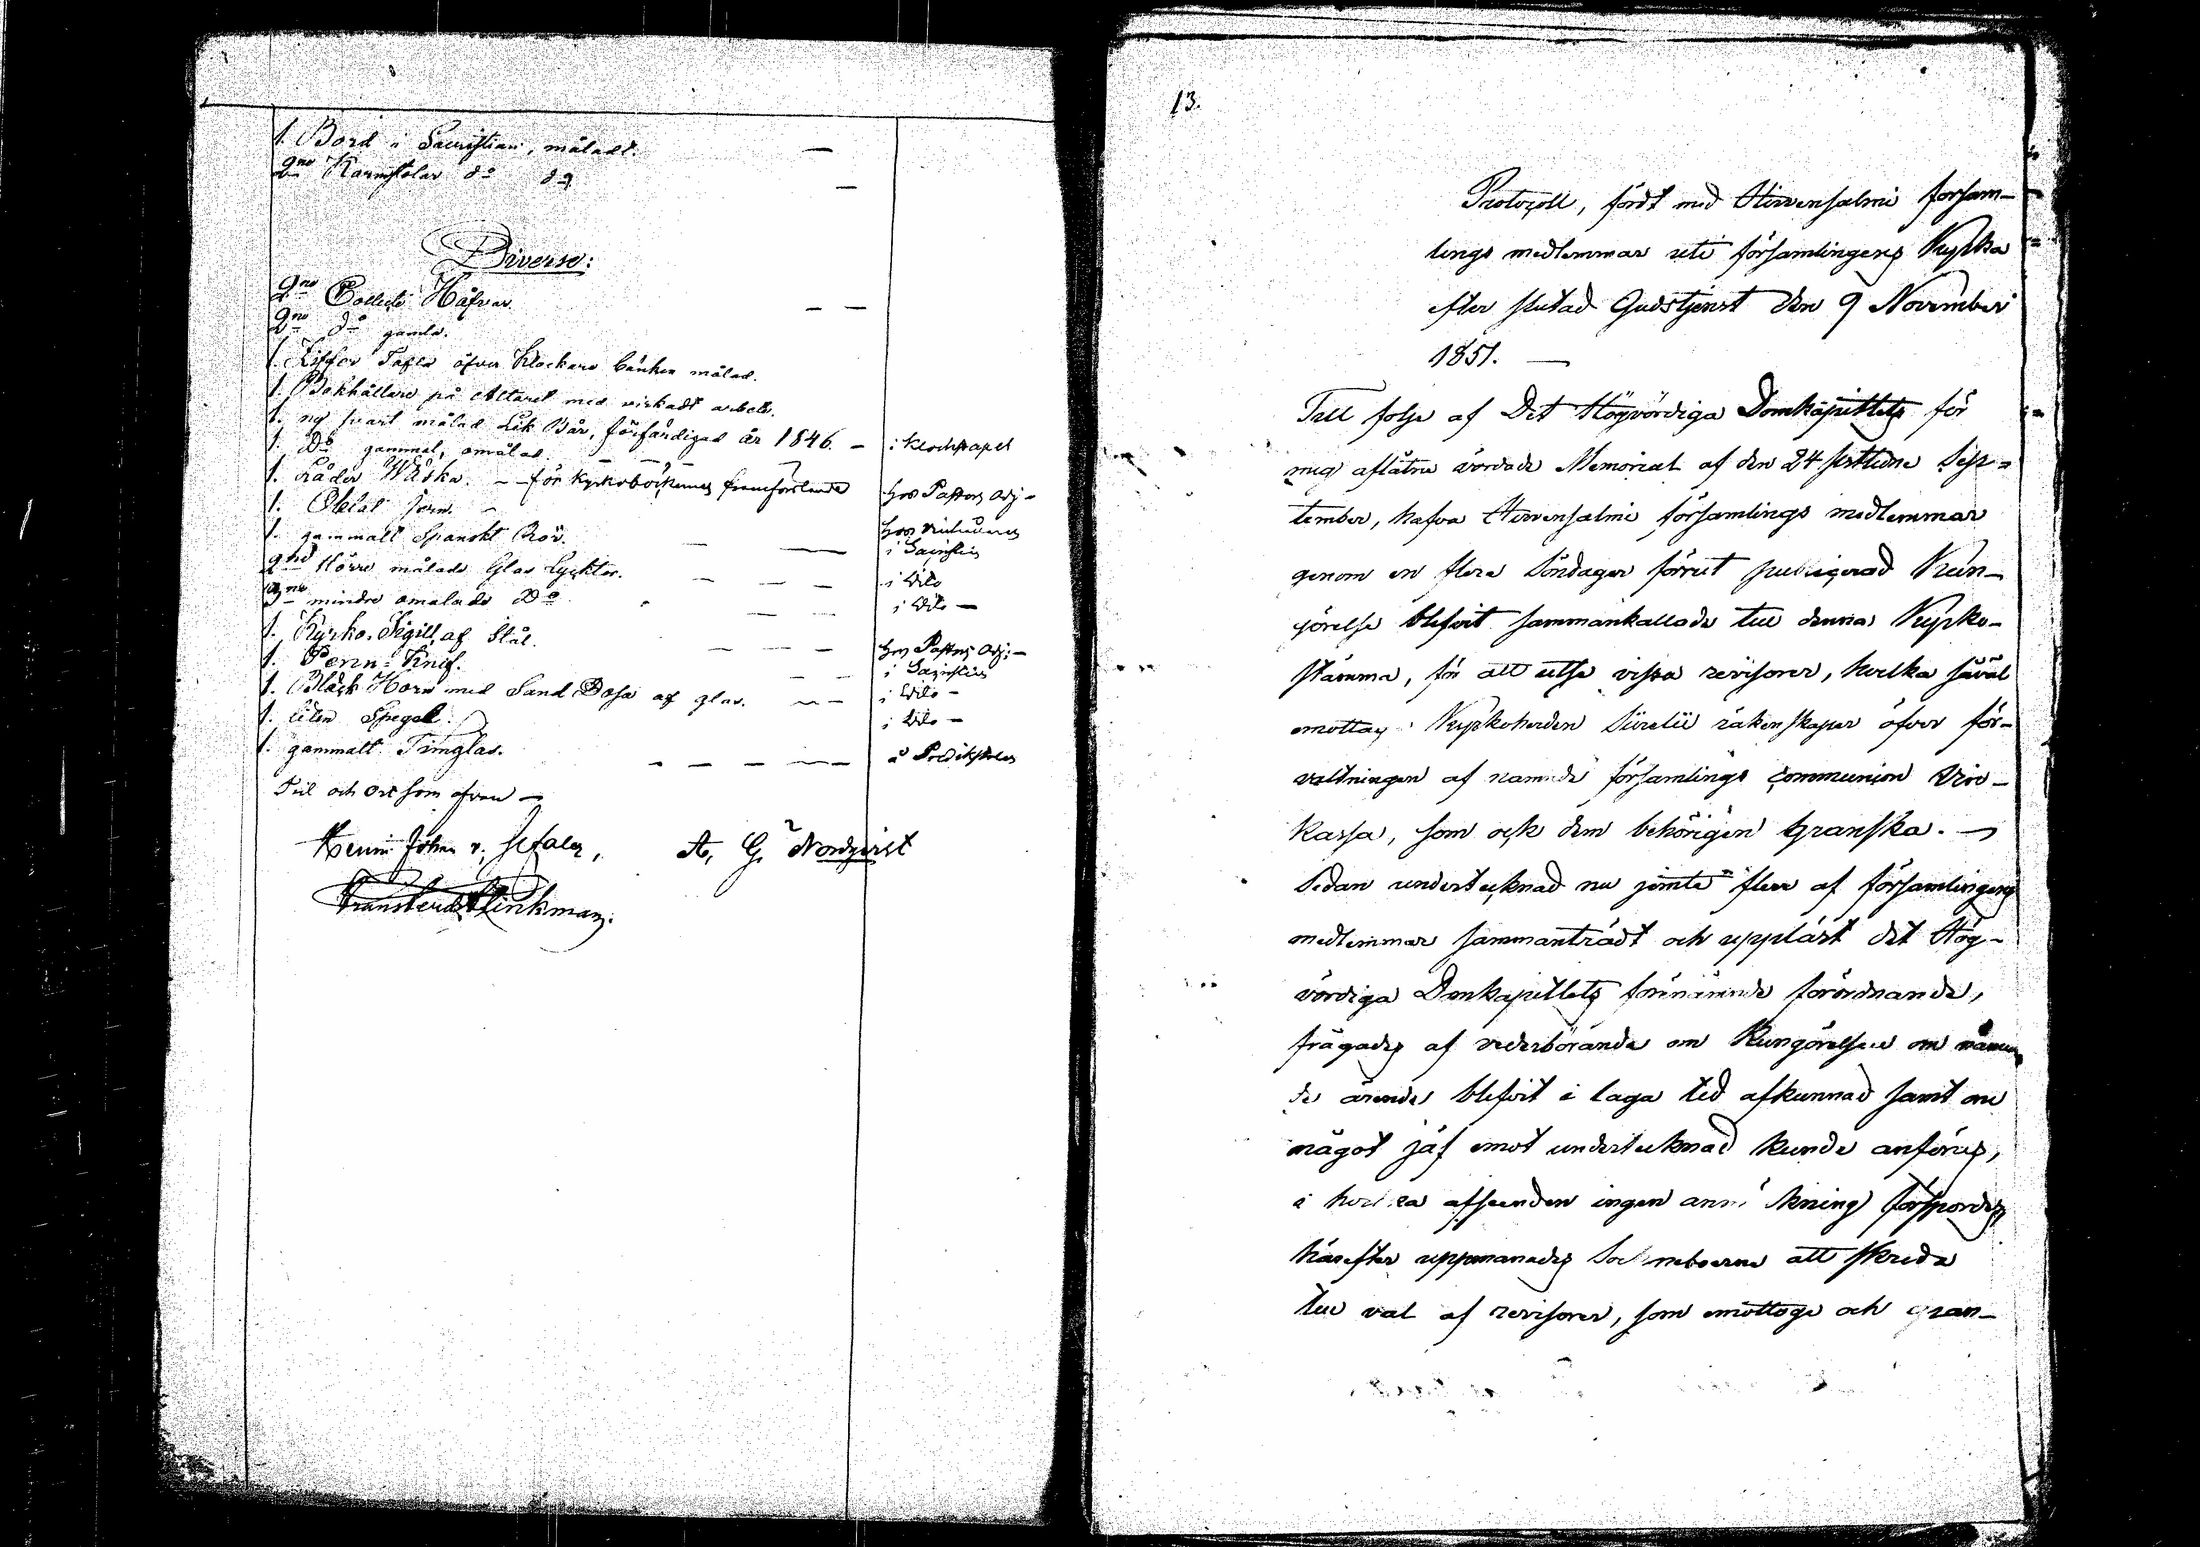 1. Bord i Sacristian, måladt. —
2ne Karmstolar do do —
Diverse:
2ne Collect Håfvar. — —
2ne do gamla.
1. Ziffer Tafla öfver Klockare bänken målad.
1. Bokhållare på Altaret med virkadt arbete.
1. ny svart målad Lik Bår, förfärdigad år 1846. — i Klockstapel
1. Do gammal, omålad.
1. Läder Wäska. — för Kyrkoböckernes framforslande hos Pastors Adj —
1. Oblat Jern. —
1. gammalt Spanskt Rör. — — i Sacristien
2ne större målade Glas Lycktor. — — — i dito
2ne mindre omålade Do — — — i dito —
1. Kyrko-Sigill af Stål. — — — hos Pastors Adj: —
1. Penn-Knif. — — i Sacristien
1. Bläck Horn med Sand Dosa af glas. — — i dito —
1. liten Spegel. i dito —
1. gammalt Timglas. — — — — — å Predikstolen
Tid och ort som ofvan —
Johan A. G. Nordqvist
Klinkman.
13.
Protocoll, fördt med Hirvensalmi försam-
lings medlemmar uti församlingens Kyrka
efter slutad Gudstjenst den 9 November
1851. —
Till följe af Det Högvördiga Domkapitlets för
mig aflåtna vördade Memorial af den 24 sistledne Sep-
tember, hafva Hirvensalmi församlings medlemmar
genom en flera Söndagar förrut publicerad Kun-
görelse blifvit sammankallade till denna Kyrko-
stämma, för att utse vissa revisorer, hvilka såväl
emottaga Kyrkoherden Sirelii räkenskaper öfver för-
valtningen af nämnde församlings communion vin-
kassa, som ock dem behörigen granska. —
Sedan undertecknad nu jemte flere af församlingens
medlemmar sammanträdt och uppläst det Hög-
vördiga Domkapitlets förenämnde förordnande,
frågades af vederbörande om Kungörelsen om nämn-
de ärende blifvit i laga tid afkunnad samt om
något jäf emot undertecknad kunde anföras,
i hvilka afseenden ingen anmärkning förspordes
härefter uppmanades Sockneboerne att skrida
till val af revisorer, som emottoge och gran-